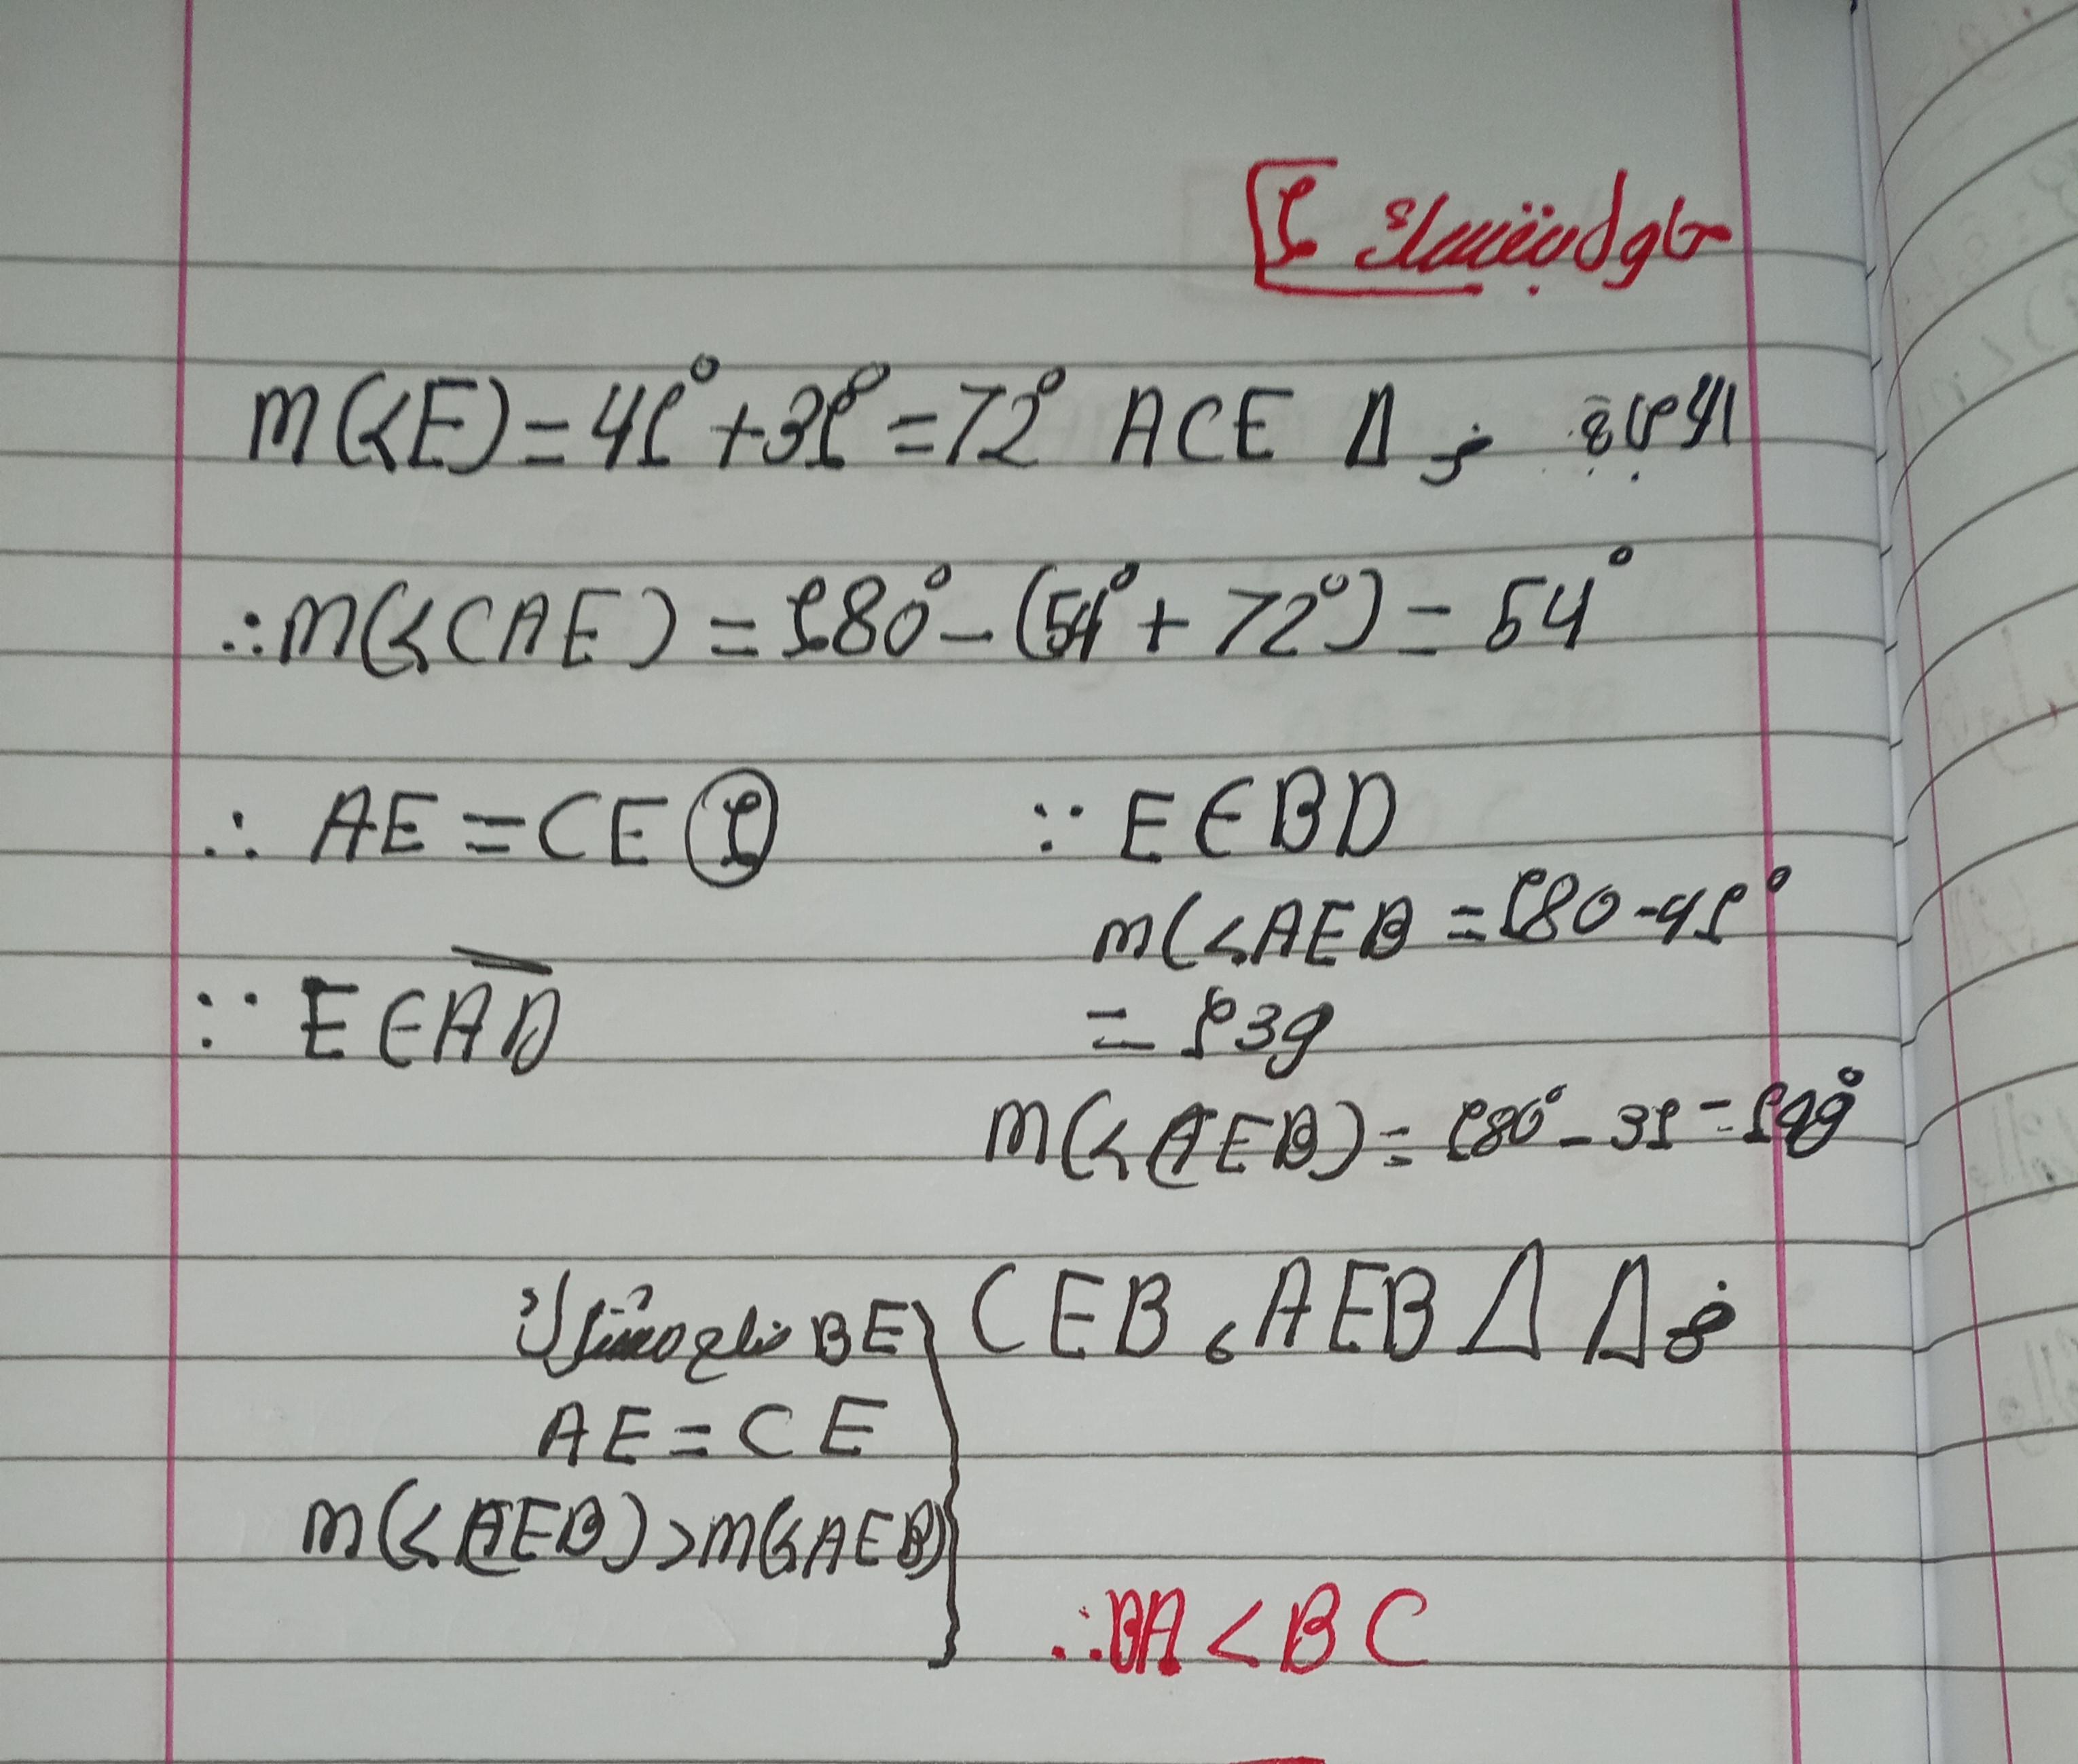 حاول بنفسك 1
m(<E)=41°+31°=72° ACE Δ في
∴m(<CAE)=180°-(54°+72°)=54°
∴ AE=CE ①
∵ E∈BD
m(<AEB=180-41°
=139
∵ E∈AD
m(<CEB)=180°-31=149°
في Δ Δ CEB، AEB
BE ضلع مشترك
AE=CE
m(<CEB)>m(<AEB)
∴BA<BC